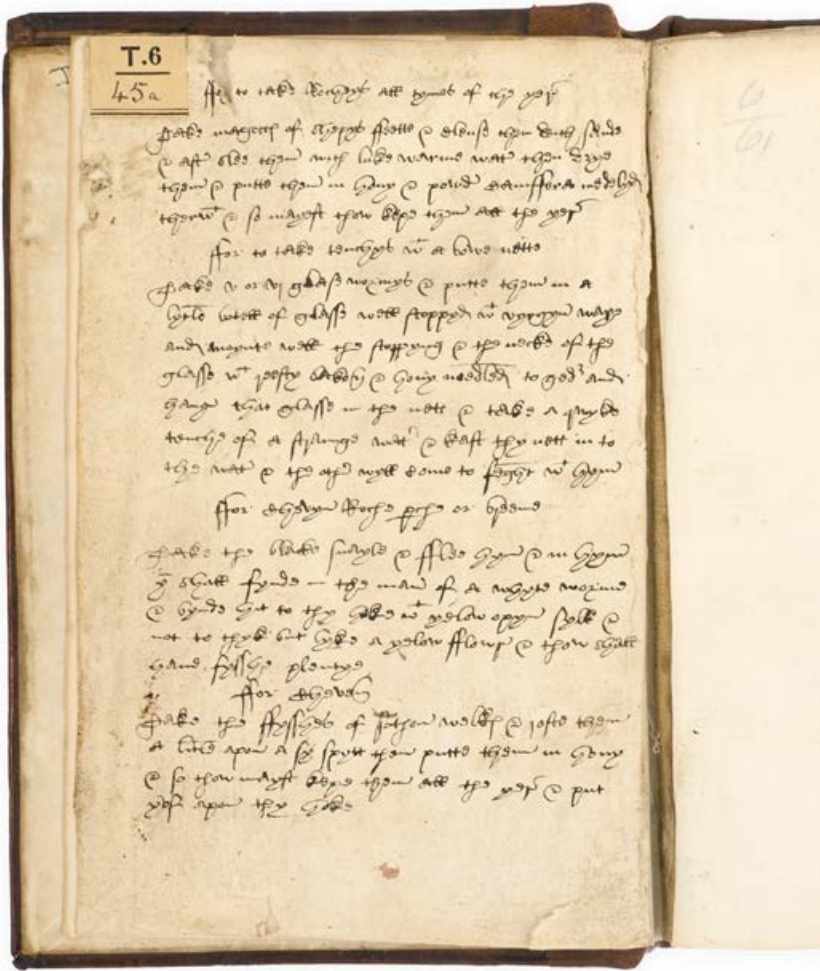 T.6
45a
ffor to take Rochys all tymes of the yer
Take magottes of shepys ffette & clense them with sande
& aft wes them with luke warme wat then drye
them & putte them in hony & powd camffora medelyd
therwt & so mayst thow kepe them all the yer
ffor to take tenchys wt a bowe nette
Take v or vj glasse wormys & putte them in a
lytle botell of glasse well stoppyd wt vyrgyn waxe
and anoynte well the stoppyng & the necke of the
glasse wt resty backon & hony medled to ged and
hange that glasse in the nett & take a quyke
tenche of a strange wat & kast thy nett in to
the wat & the oth wyll come to feght wt hym
ffor chevyn Roche pche or breme
Take the blacke snayle & fflee hym & in hym
yu shall fynde in the man of a whyte worme
& bynde hit to thy hoke wt yelow opyn sylk &
not to thyk but lyke a yelow fflowr & thow shall
have fysshe plentye
ffor cheven
Take the ffysshes of welks & roste them
a litle apon a spytt then putte them in hony
& so thow mayst kepe them all the yer & put
apon thy hoke
6
61